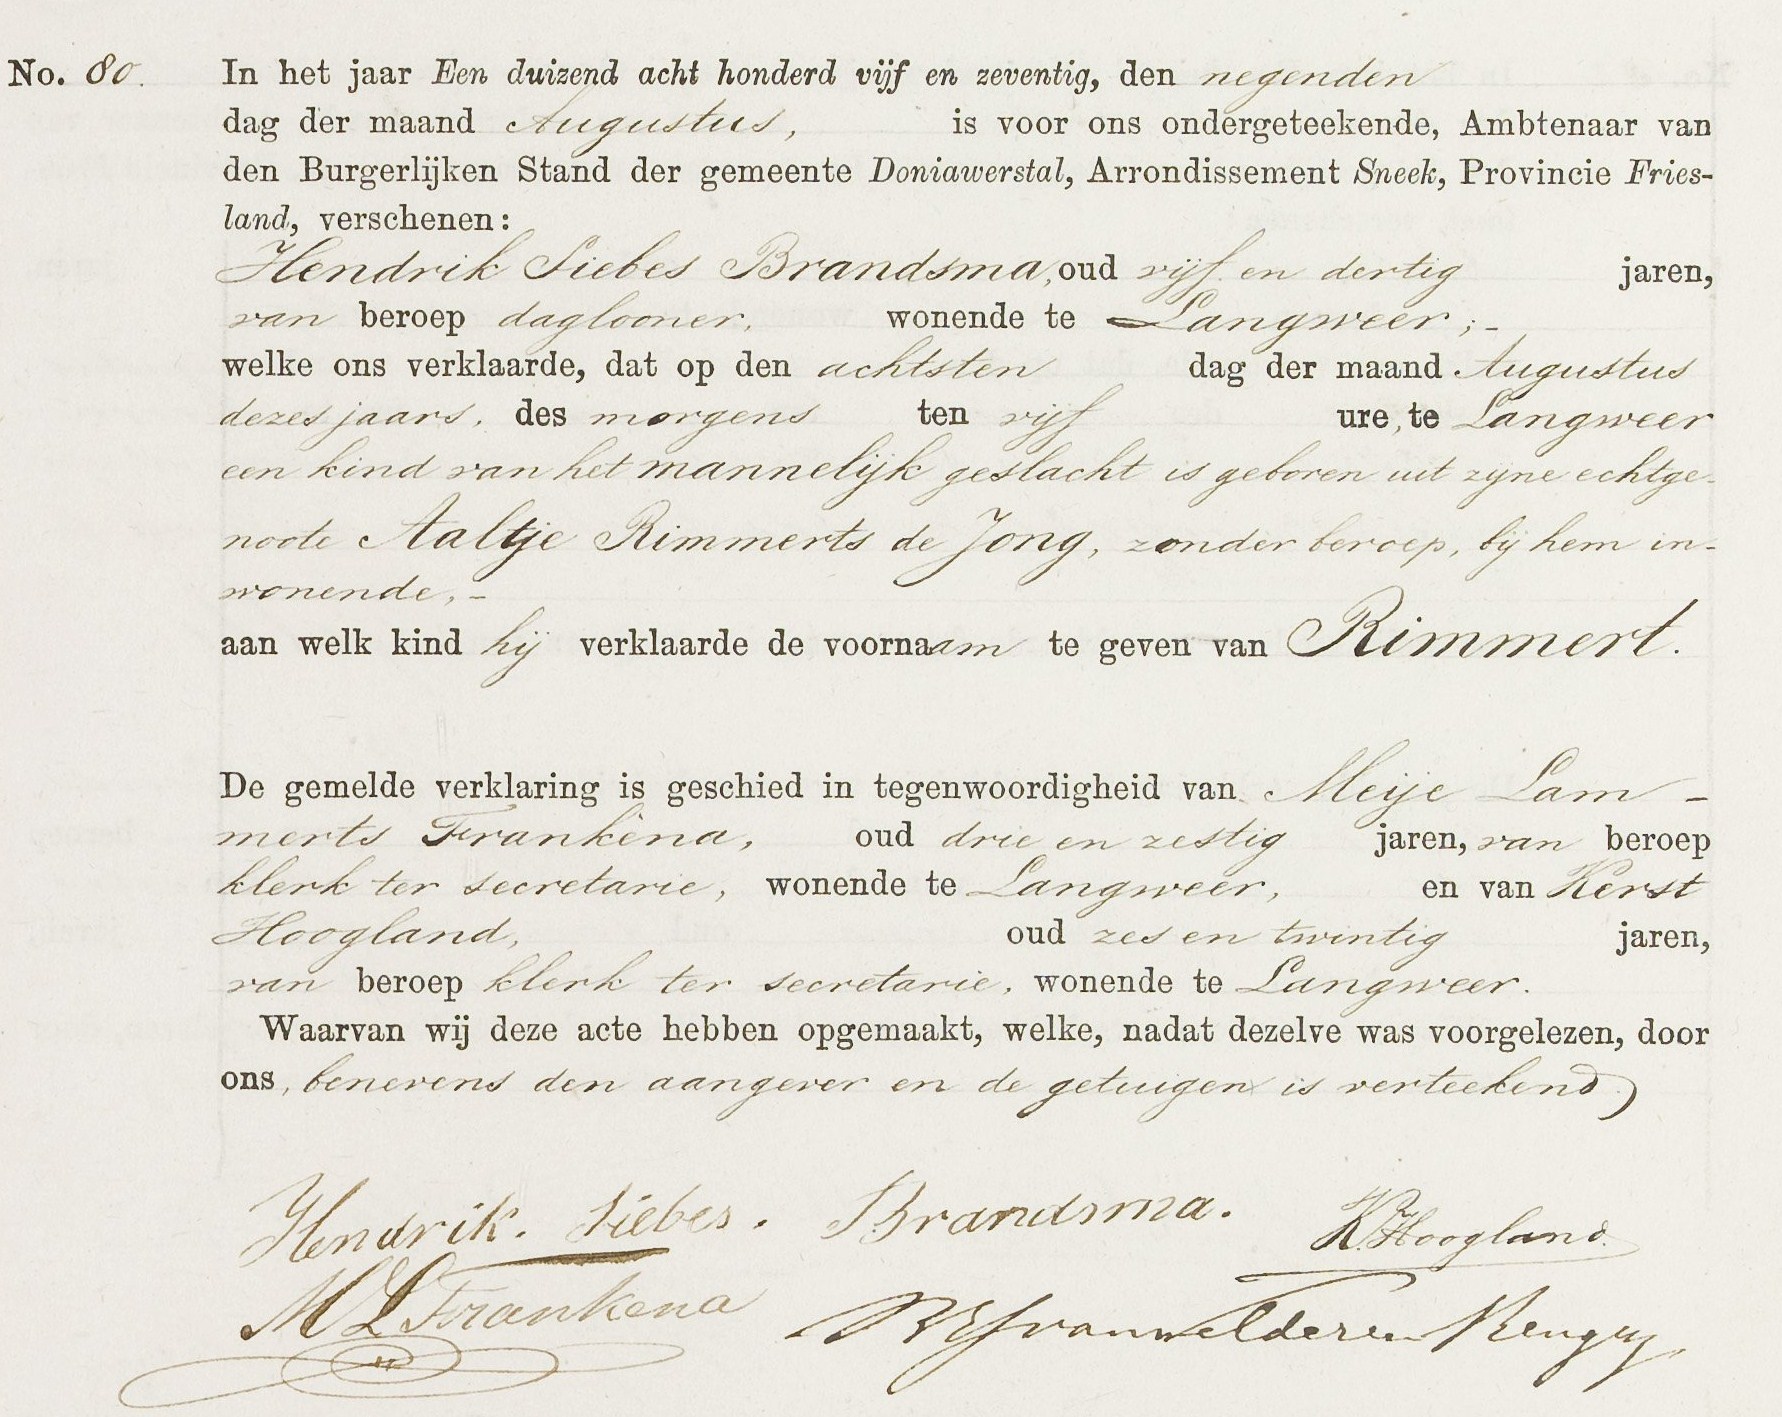 No. 80. In het jaar Een duizend acht honderd vijf en zeventig, den negenden
dag der maand Augustus, is voor ons ondergeteekende, Ambtenaar van
den Burgerlijken Stand der gemeente Doniawerstal, Arrondissement Sneek, Provincie Fries-
land, verschenen:
Hendrik Siebes Brandsma, oud vijf en dertig jaren,
van beroep daglooner, wonende te Langweer;-
welke ons verklaarde, dat op den achtsten dag der maand Augustus
dezes jaars, des morgens ten vijf ure, te Langweer
een kind van het mannelijk geslacht is geboren uit zijne echtge-
noote Aaltje Rimmerts de Jong, zonder beroep, bij hem in-
wonende,-
aan welk kind hij verklaarde de voornaam te geven van Rimmert.
De gemelde verklaring is geschied in tegenwoordigheid van Meije Lam-
merts Frankena, oud drie en zestig jaren, van beroep
klerk ter secretarie, wonende te Langweer, en van Kerst
Hoogland, oud zes en twintig jaren,
van beroep klerk ter secretarie, wonende te Langweer.
Waarvan wij deze acte hebben opgemaakt, welke, nadat dezelve was voorgelezen, door
ons, benevens den aangever en de getuigen is verteekend.
Hendrik. Siebes. Brandsma. K. Hoogland.
M L Frankena van Welderen Rengers